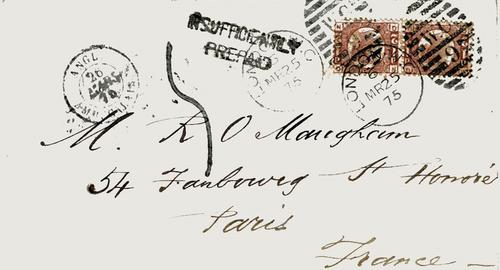 INSUFFICIENTLY
PREPAID
LONDON
MR 25
75
LONDON
MR 25
75
ANGL.
26
MARS
75
M. R O Maugham
54 Faubourg St Honoré
Paris
France